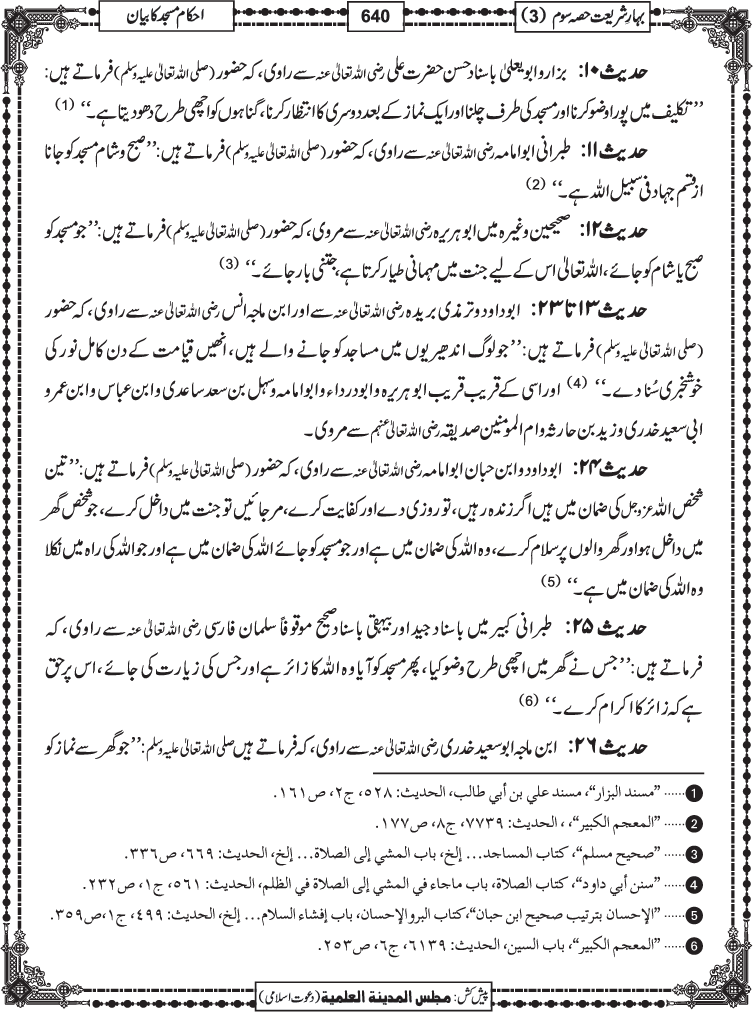 بہارِ شریعت حصہ سوم (3)
640
احکام مسجد کا بیان
حدیث ۱۰: بزار و ابویعلیٰ باسناد حسن حضرت علی رضی اللہ تعالیٰ عنہ سے راوی، کہ حضور (صلی اللہ تعالیٰ علیہ وسلم) فرماتے ہیں:
’’تکلیف میں پورا وضو کرنا اور مسجد کی طرف چلنا اور ایک نماز کے بعد دوسری کا انتظار کرنا، گناہوں کو اچھی طرح دھو دیتا ہے۔‘‘ (1)
حدیث ۱۱: طبرانی ابوامامہ رضی اللہ تعالیٰ عنہ سے راوی، کہ حضور (صلی اللہ تعالیٰ علیہ وسلم) فرماتے ہیں: ’’صبح و شام مسجد کو جانا
از قسم جہاد فی سبیل اللہ ہے۔‘‘ (2)
حدیث ۱۲: صحیحین وغیرہ میں ابوہریرہ رضی اللہ تعالیٰ عنہ سے مروی، کہ حضور (صلی اللہ تعالیٰ علیہ وسلم) فرماتے ہیں: ’’جو مسجد کو
صبح یا شام کو جائے، اللہ تعالیٰ اس کے لیے جنت میں مہمانی طیار کرتا ہے، جتنی بار جائے۔‘‘ (3)
حدیث ۱۳ تا ۲۳: ابوداود و ترمذی بریدہ رضی اللہ تعالیٰ عنہ سے اور ابن ماجہ انس رضی اللہ تعالیٰ عنہ سے راوی، کہ حضور
(صلی اللہ تعالیٰ علیہ وسلم) فرماتے ہیں: ’’جو لوگ اندھیریوں میں مساجد کو جانے والے ہیں، انھیں قیامت کے دن کامل نور کی
خوشخبری سُنا دے۔‘‘ (4) اور اسی کے قریب قریب ابوہریرہ و ابودرداء و ابوامامہ و سہل بن سعد ساعدی و ابن عباس و ابن عمرو
ابی سعید خدری و زید بن حارثہ و ام المومنین صدیقہ رضی اللہ تعالیٰ عنہم سے مروی۔
حدیث ۲۴: ابوداود و ابن حبان ابوامامہ رضی اللہ تعالیٰ عنہ سے راوی، کہ حضور (صلی اللہ تعالیٰ علیہ وسلم) فرماتے ہیں: ’’تین
شخص اللہ عزوجل کی ضمان میں ہیں اگر زندہ رہیں، تو روزی دے اور کفایت کرے، مر جائیں تو جنت میں داخل کرے، جو شخص گھر
میں داخل ہو اور گھر والوں پر سلام کرے، وہ اللہ کی ضمان میں ہے اور جو مسجد کو جائے اللہ کی ضمان میں ہے اور جو اللہ کی راہ میں نکلا
وہ اللہ کی ضمان میں ہے۔‘‘ (5)
حدیث ۲۵: طبرانی کبیر میں باسناد جید اور بیہقی باسناد صحیح موقوفاً سلمان فارسی رضی اللہ تعالیٰ عنہ سے راوی، کہ
فرماتے ہیں: ’’جس نے گھر میں اچھی طرح وضو کیا، پھر مسجد کو آیا وہ اللہ کا زائر ہے اور جس کی زیارت کی جائے، اس پر حق
ہے کہ زائر کا اکرام کرے۔‘‘ (6)
حدیث ۲۶: ابن ماجہ ابوسعید خدری رضی اللہ تعالیٰ عنہ سے راوی، کہ فرماتے ہیں صلی اللہ تعالیٰ علیہ وسلم: ’’جو گھر سے نماز کو
1 ...... ”مسند البزار“، مسند علي بن أبي طالب، الحديث: ٥٢٨، ج٢، ص١٦١.
2 ...... ”المعجم الكبير“، ، الحديث: ٧٧٣٩، ج٨، ص١٧٧.
3 ...... ”صحيح مسلم“، كتاب المساجد... إلخ، باب المشي إلى الصلاة... إلخ، الحديث: ٦٦٩، ص٣٣٦.
4 ...... ”سنن أبي داود“، كتاب الصلاة، باب ماجاء في المشي إلى الصلاة في الظلم، الحديث: ٥٦١، ج١، ص٢٣٢.
5 ...... ”الإحسان بترتيب صحيح ابن حبان“، كتاب البر والإحسان، باب إفشاء السلام... إلخ، الحديث: ٤٩٩، ج١، ص٣٥٩.
6 ...... ”المعجم الكبير“، باب السين، الحديث: ٦١٣٩، ج٦، ص٢٥٣.
پیش کش: مجلس المدینة العلمیة (دعوت اسلامی)